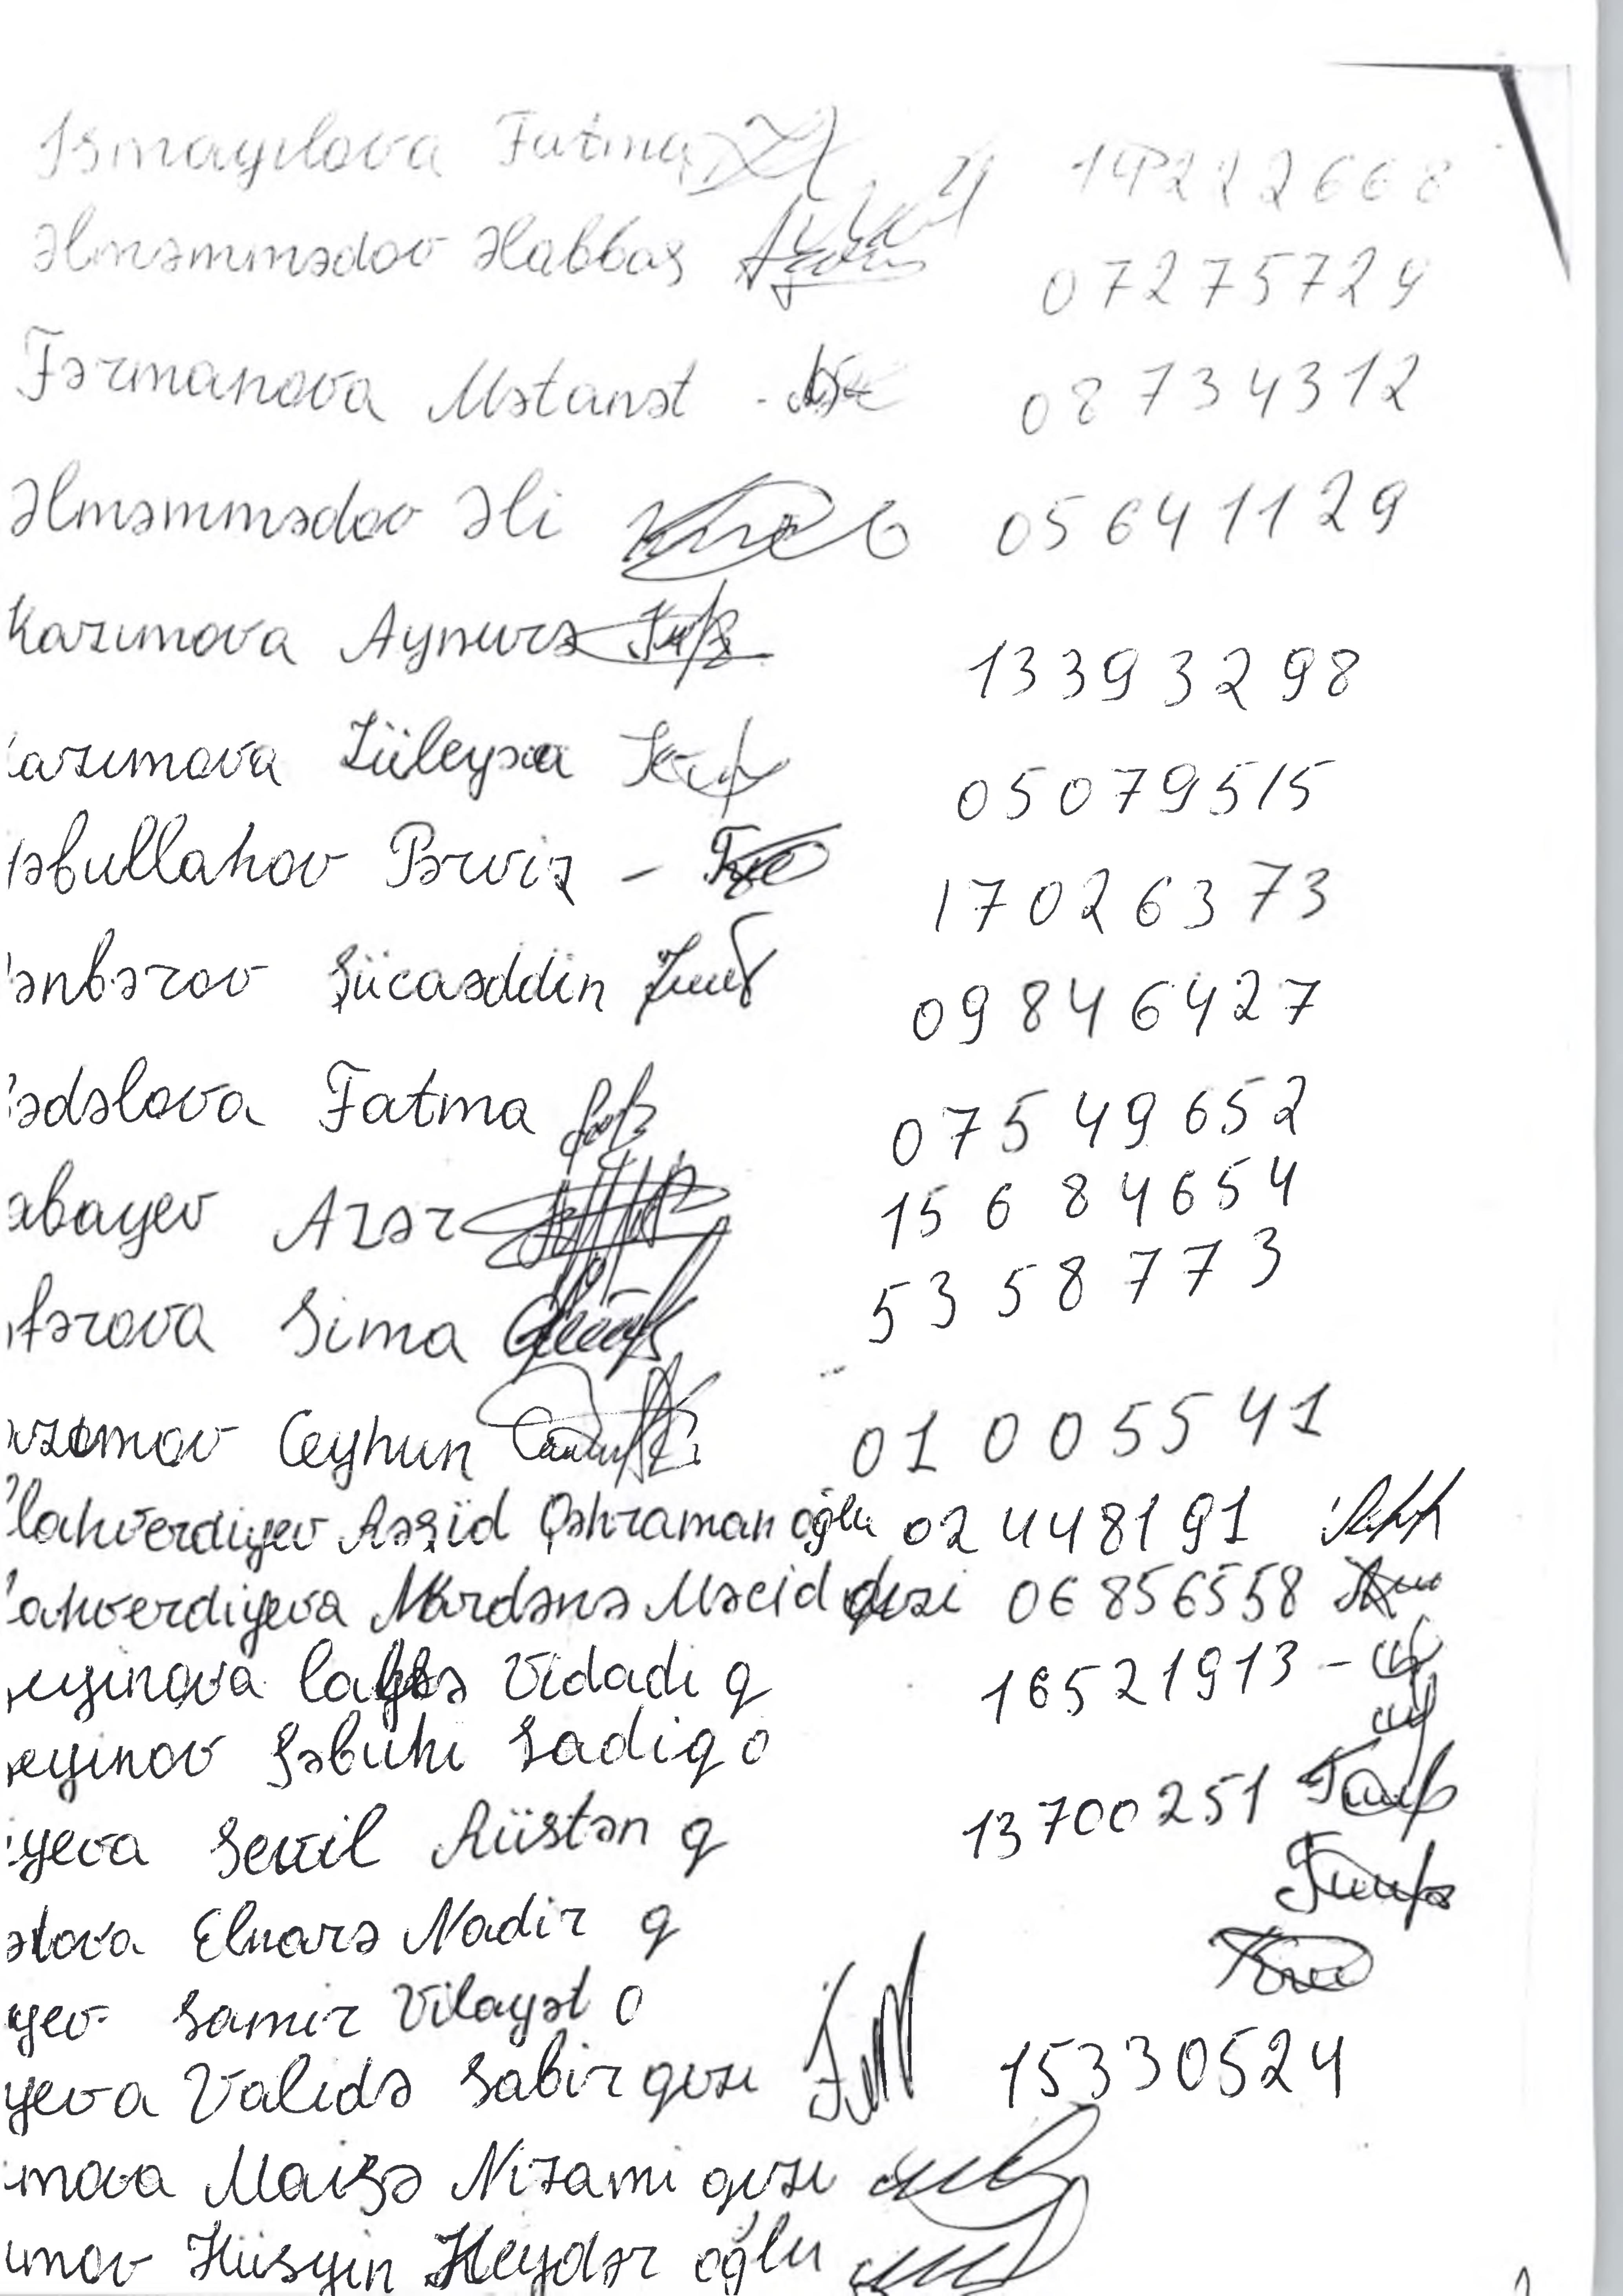 Ismayılova Fatma 14222668
Əlməmmədov Əlabbas 07275729
Fərmanova Mətanət - 08734312
Əlməmmədov Əli 05641129
Kazımova Aynurə 13393298
azımova Züleyxa 05079515
əbullahov Pərviz - 17026373
ənbərov Şücaəddin 09846427
ədəlova Fatma 07549652
abayev Azər 15684654
fərova Sima 5358773
azımov Ceyhun 01005541
lahverdiyev Rəşid Qəhraman oğlu 02448191
ahverdiyeva Mərdanə Məcid qızı 06856558
eyinova Vidadi q 16521913 -
eyinov Səbuhi Sadiq o
yeva Sevil Rüstən q 13700251
ətova Elnarə Nadir q
yev Samir Vilayət O
yeva Validə Sabir qızı 15330524
mova Maisə Nizami qızı
ımov Hüsyin Heydər oğlu